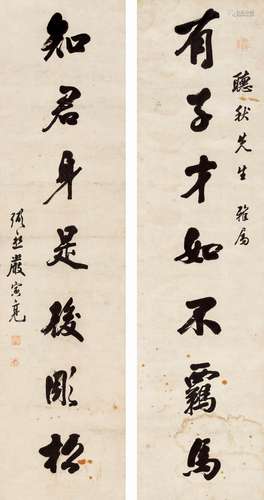 有子才如不羈馬
聽秋先生雅屬
知君身是後彫松
嚴寅亮